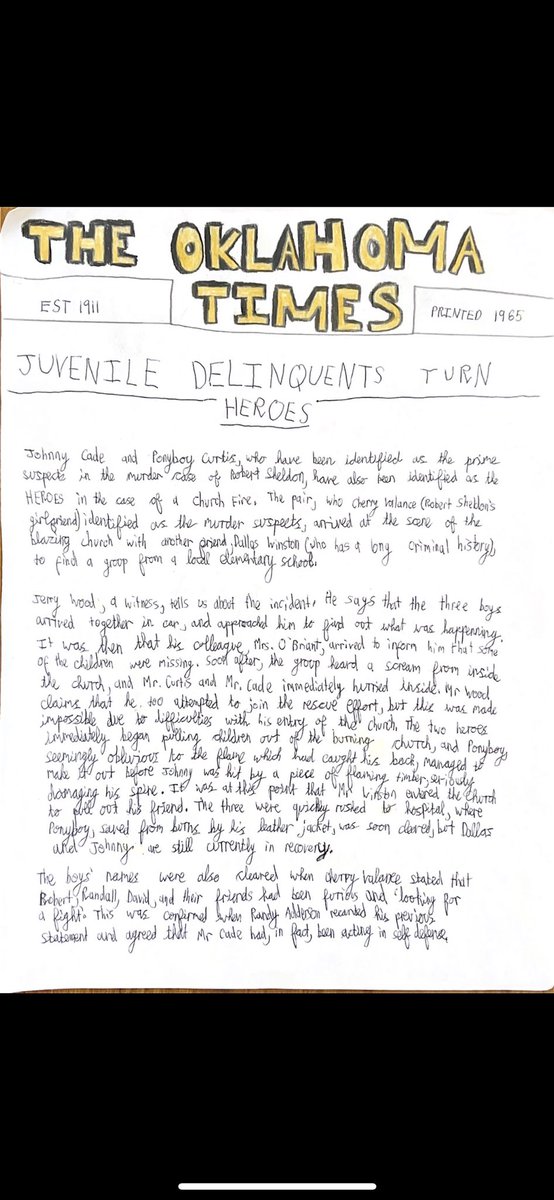 THE OKLAHOMA
TIMES
EST 1911
PRINTED 1965
JUVENILE DELINQUENTS TURN
HEROES
Johnny Cade and Ponyboy Curtis, who have been identified as the prime
suspects in the murder case of Robert Sheldon, have also been identified as the
HEROES in the case of a Church Fire. The pair, who Cherry Valance (Robert Sheldon's
girlfriend) identified as the murder suspects, arrived at the scene of the
blazing church with another friend, Dallas Winston (who has a long criminal history),
to find a group from a local elementary school.
Jerry Wood, a witness, tells us about the incident. He says that the three boys
arrived together in car, and approached him to find out what was happening.
It was then that his colleague, Mrs. O'Briant, arrived to inform him that some
of the children were missing. Soon after, the group heard a scream from inside
the church, and Mr. Curtis and Mr. Cade immediately hurried inside. Mr Wood
claims that he too attempted to join the rescue effort, but this was made
impossible due to difficulties with his entry of the church. The two heroes
immediately began pulling children out of the burning church, and Ponyboy,
seemingly oblivious to the flame which had caught his back, managed to
make it out before Johnny was hit by a piece of flaming timber, seriously
damaging his spine. It was at this point that Mr Winston entered the church
to pull out his friend. The three were quickly rushed to hospital, where
Ponyboy, saved from burns by his leather jacket, was soon cleared, but Dallas
and Johnny are still currently in recovery.
The boys' names were also cleared when Cherry Valance stated that
Robert, Randall, David, and their friends had been furious and 'looking for
a fight'. This was confirmed when Randy Adderson recanted his previous
statement and agreed that Mr Cade had, in fact, been acting in self defense.